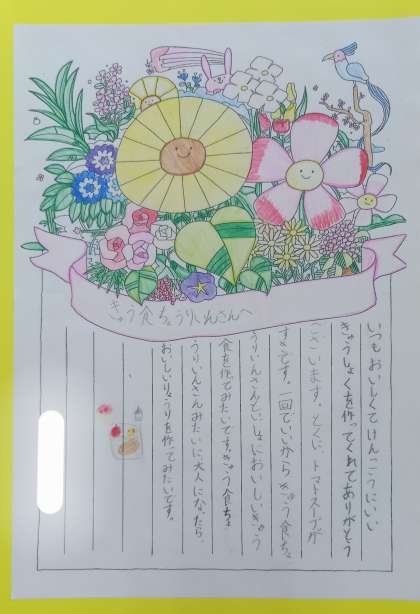 きゅう食ちょうりいんさんへ
いつもおいしくてけんこうにいい
きゅうしょくを作ってくれてありがとう
ございます。とくに、トマトスープが
すきです。一回でいいからきゅう食ちょ
うりいんさんといっしょにおいしいきゅう
食を作ってみたいです。きゅう食ちょ
うりいんさんみたいに大人になったら、
おいしいりょうりを作ってみたいです。